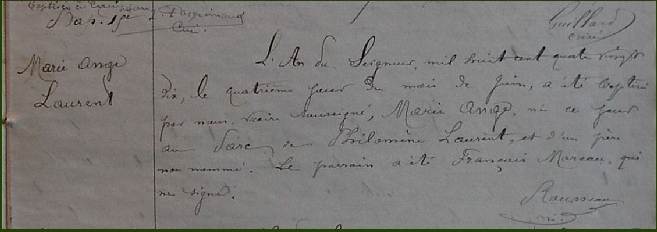 Bap. 19e
Curé.
Guillard
curé
Marie Ange
Laurent
L'An du Seigneur, mil huit cent quatre vingt
dix, le quatrième jour du mois de Juin, a été baptisé
par nous, vicaire soussigné, Marie Ange, né ce jour
au Parc, de Philomène Laurent, et d'un père
non nommé. Le parrain a été François Moreau, qui
ne signe.
Rousseau